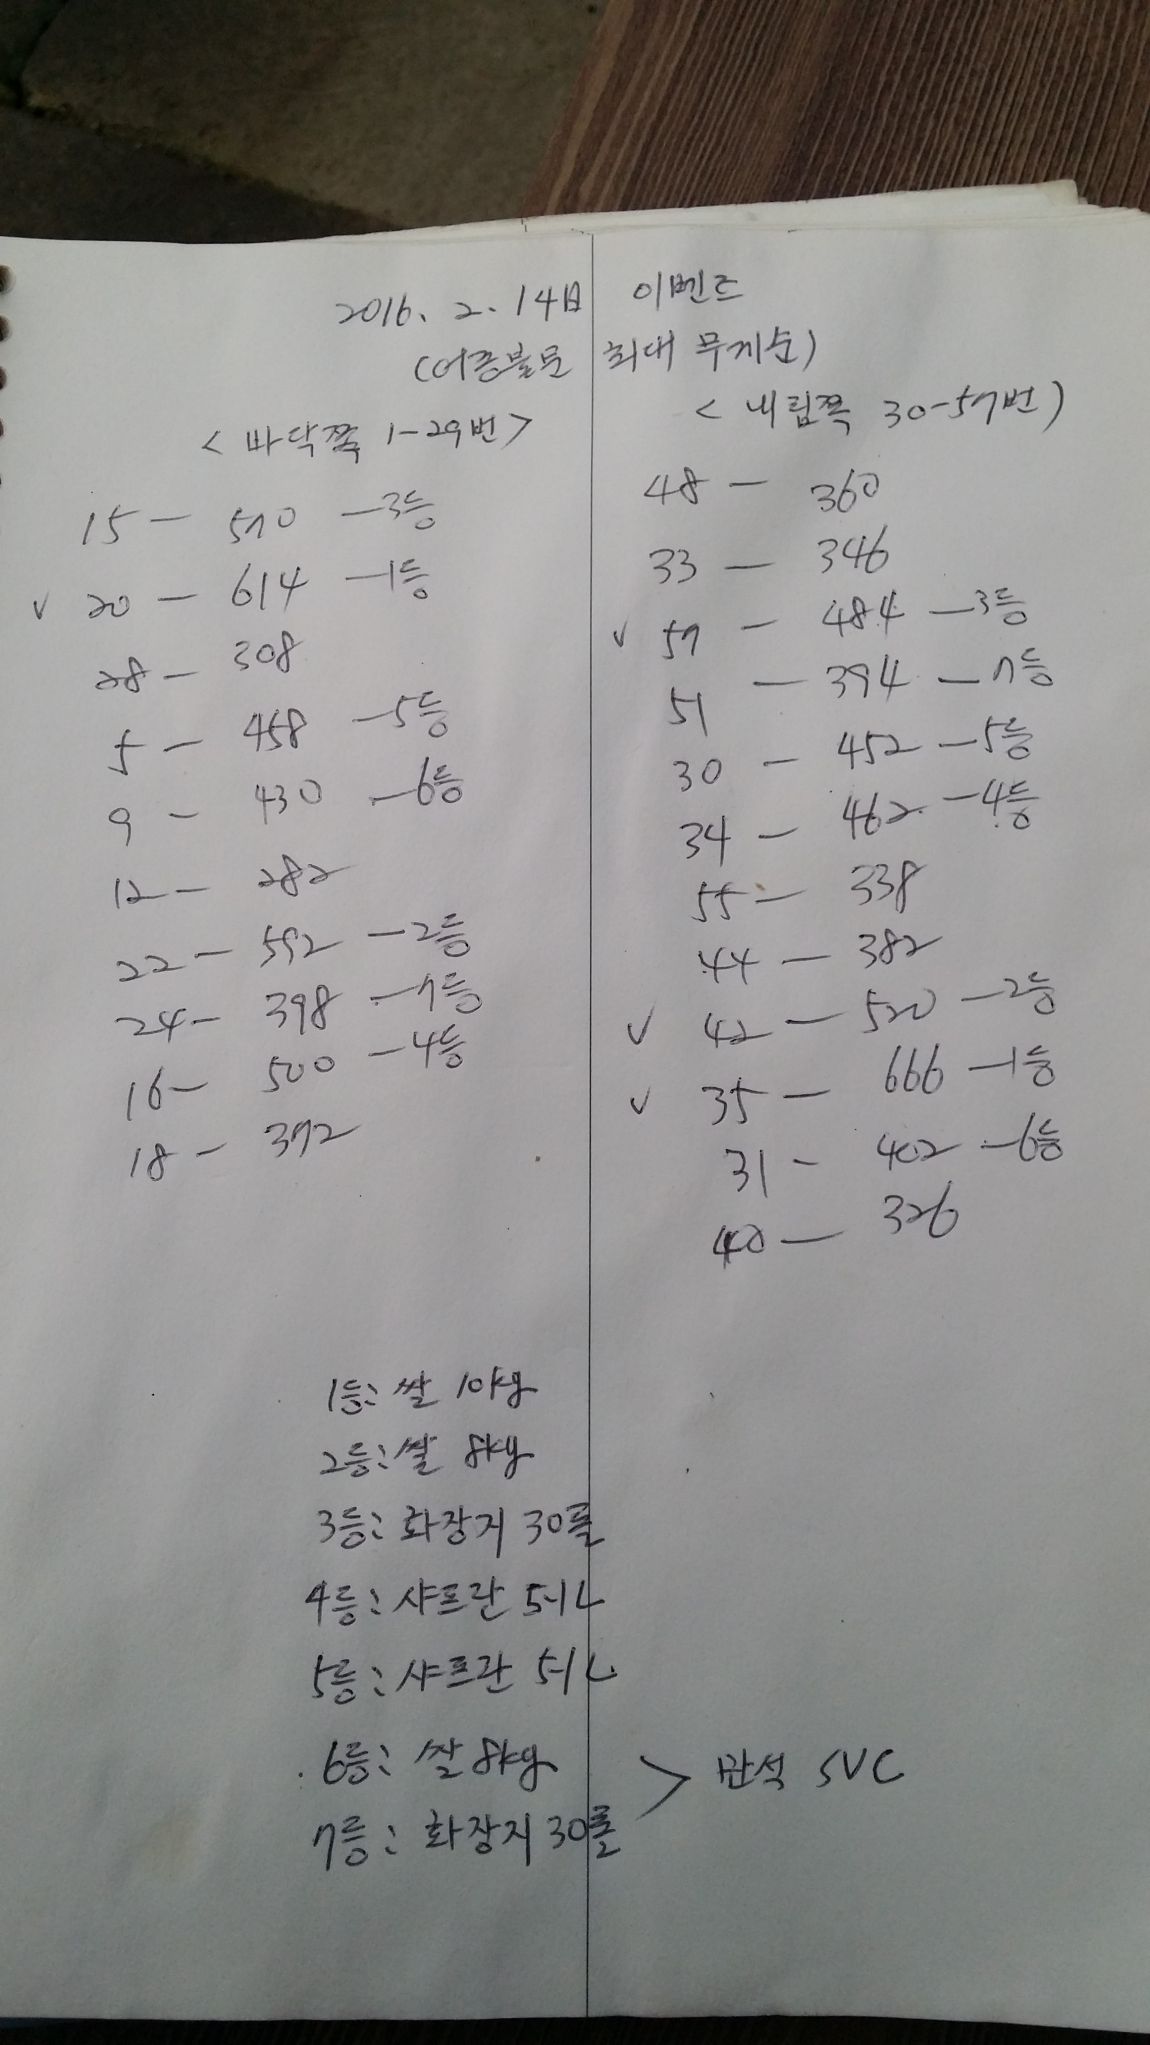 2016. 2. 14日 이벤트
(어종불문 최대 무게순)
<바닥쪽 1-29번>
15 - 570 - 3등
✓ 20 - 614 - 1등
28 - 308
5 - 458 - 5등
9 - 430 - 6등
12 - 282
22 - 592 - 2등
24 - 398 - 7등
16 - 500 - 4등
18 - 372
<내림쪽 30-57번>
48 - 360
33 - 346
✓ 57 - 484 - 3등
51 - 394 - 7등
30 - 452 - 5등
34 - 462 - 4등
55 - 338
44 - 382
✓ 42 - 520 - 2등
✓ 35 - 666 - 1등
31 - 402 - 6등
40 - 326
1등: 쌀 10kg
2등: 쌀 8kg
3등: 화장지 30롤
4등: 샤프란 5-1L
5등: 샤프란 5-1L
6등: 쌀 8kg
7등: 화장지 30롤
> 만석 SVC